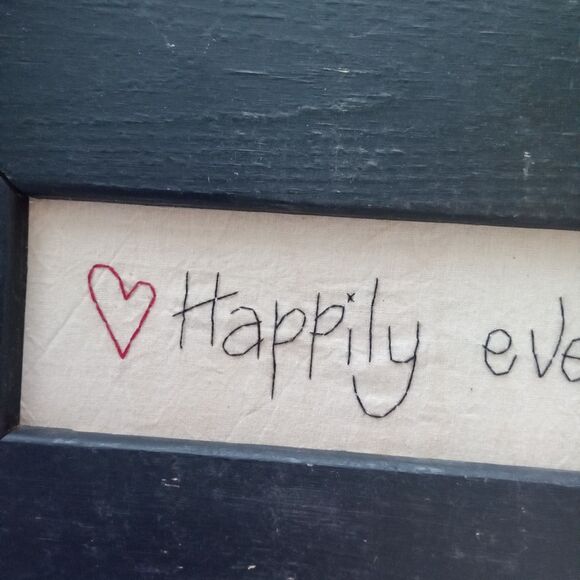 Happily eve